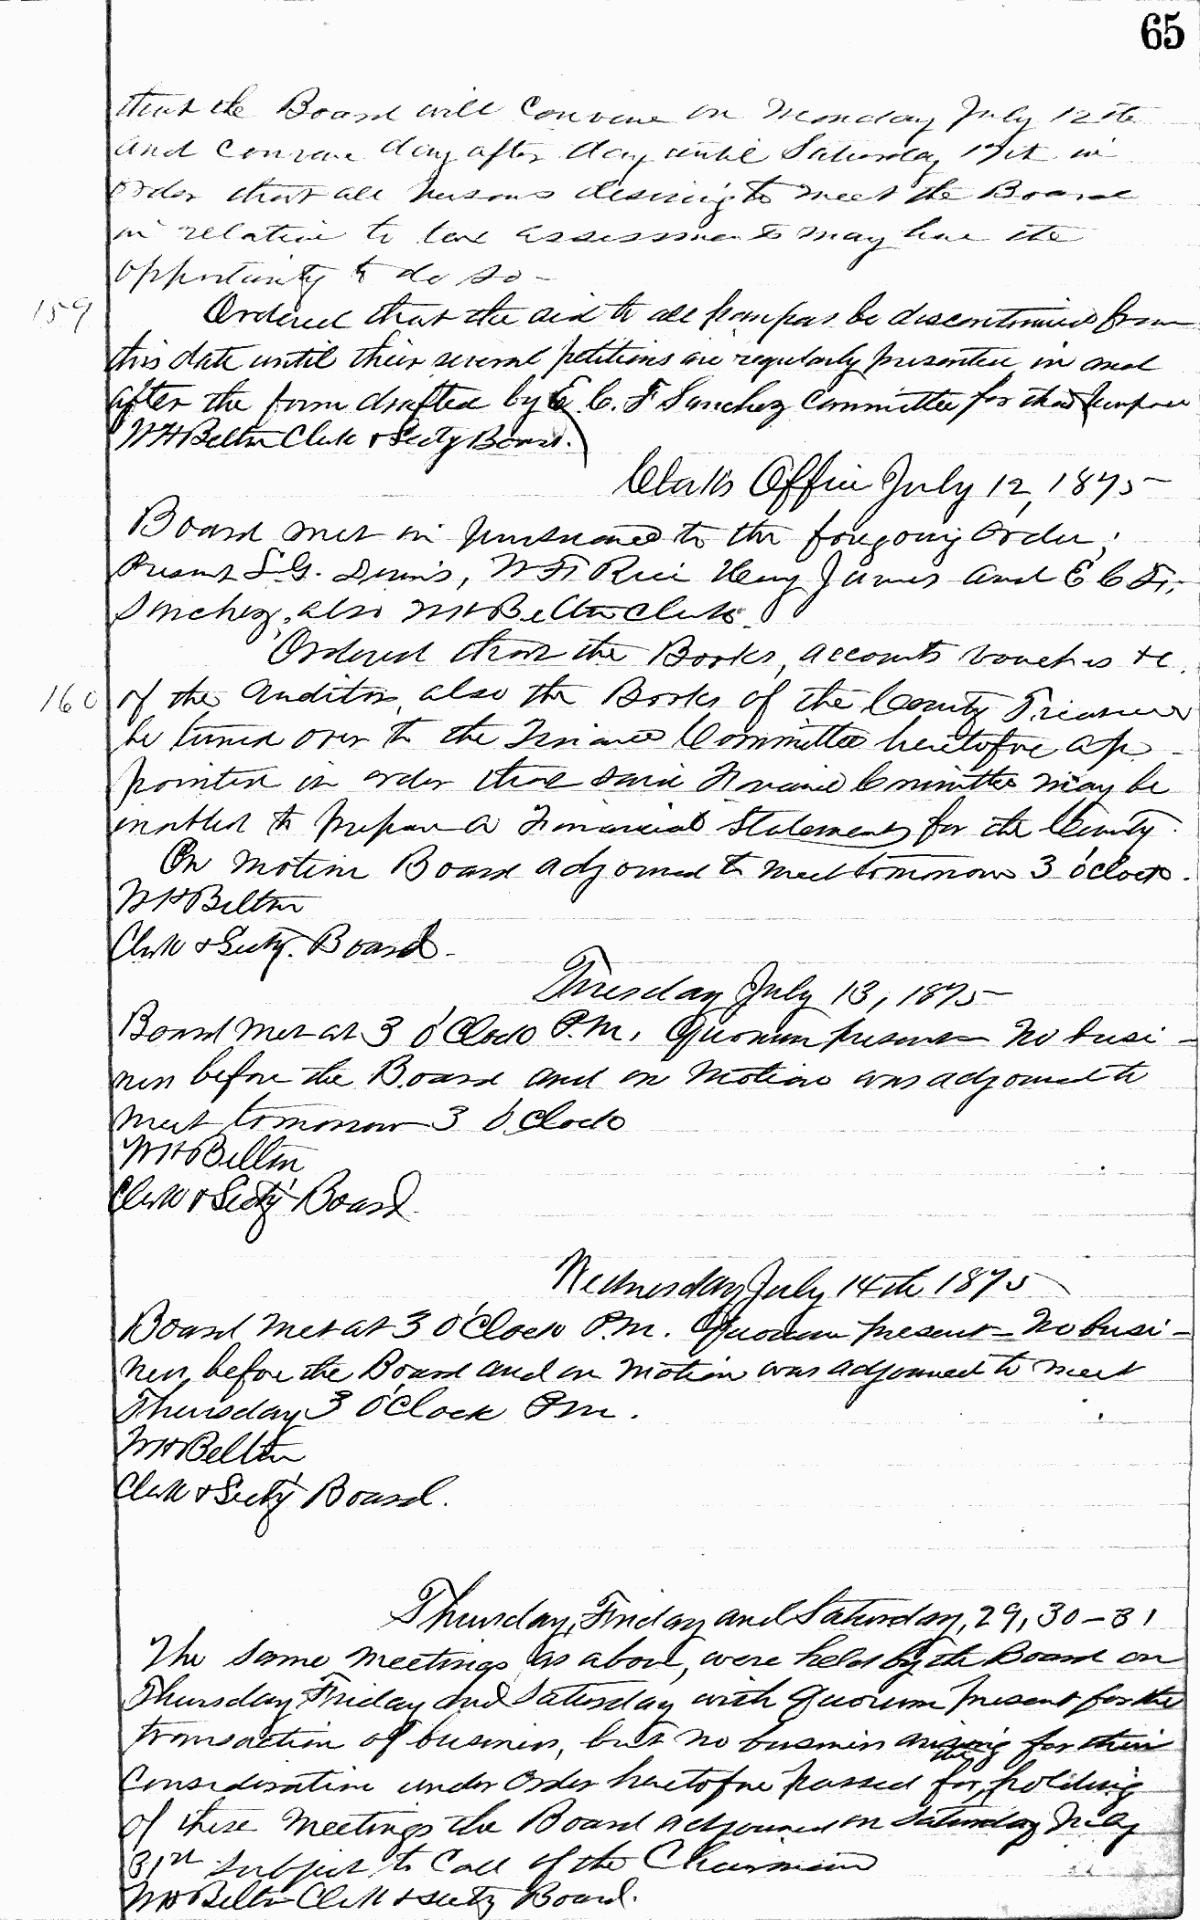 65
that the Board will convene on Monday July 12th
and convene day after day until Saturday 17th in
order that all persons desiring to meet the Board
in relation to tax assessments may have the
opportunity to do so -
159 Ordered that the aid to all paupers be discontinued from
this date until their several petitions are regularly presented in and
after the form drafted by E. C. F Sanchez Committee for that purpose
W H Belton Clerk & Secty Board.
Clerks Office July 12, 1875
Board met in pursuance to the foregoing order;
Present S. G. Dennis, W F Rice Henry James and E C F.
Sanchez, also W H Belton Clerk.
Ordered that the Books, accounts vouchers &c.
160 of the Auditor, also the Books of the County Treasurer
be turned over to the Finance Committee heretofore ap-
pointed in order that said Finance Committee may be
enabled to prepare a Financial Statement for the County.
On motion Board adjourned to meet tomorrow 3 o'clock.
W H Belton
Clerk & Secty. Board.
Tuesday July 13, 1875
Board met at 3 O'Clock P.M. Quorum present - No busi-
ness before the Board and on motion was adjourned to
meet tomorrow 3 O'Clock
W H Belton
Clerk & Secty Board
Wednesday July 14th 1875
Board met at 3 O'Clock P.M. Quorum present - No busi-
ness before the Board and on motion was adjourned to meet
Thursday 3 O'Clock P.M.
W H Belton
Clerk & Secty Board.
Thursday, Friday and Saturday, 29, 30 - 31
The same meetings as above, were held by the Board on
Thursday Friday and Saturday with Quorum present for the
transaction of business, but no business arising for their
Consideration under order heretofore passed for the holding
of these meetings the Board adjourned on Saturday July
31st subject to Call of the Chairman
W H Belton Clerk & Secty Board.